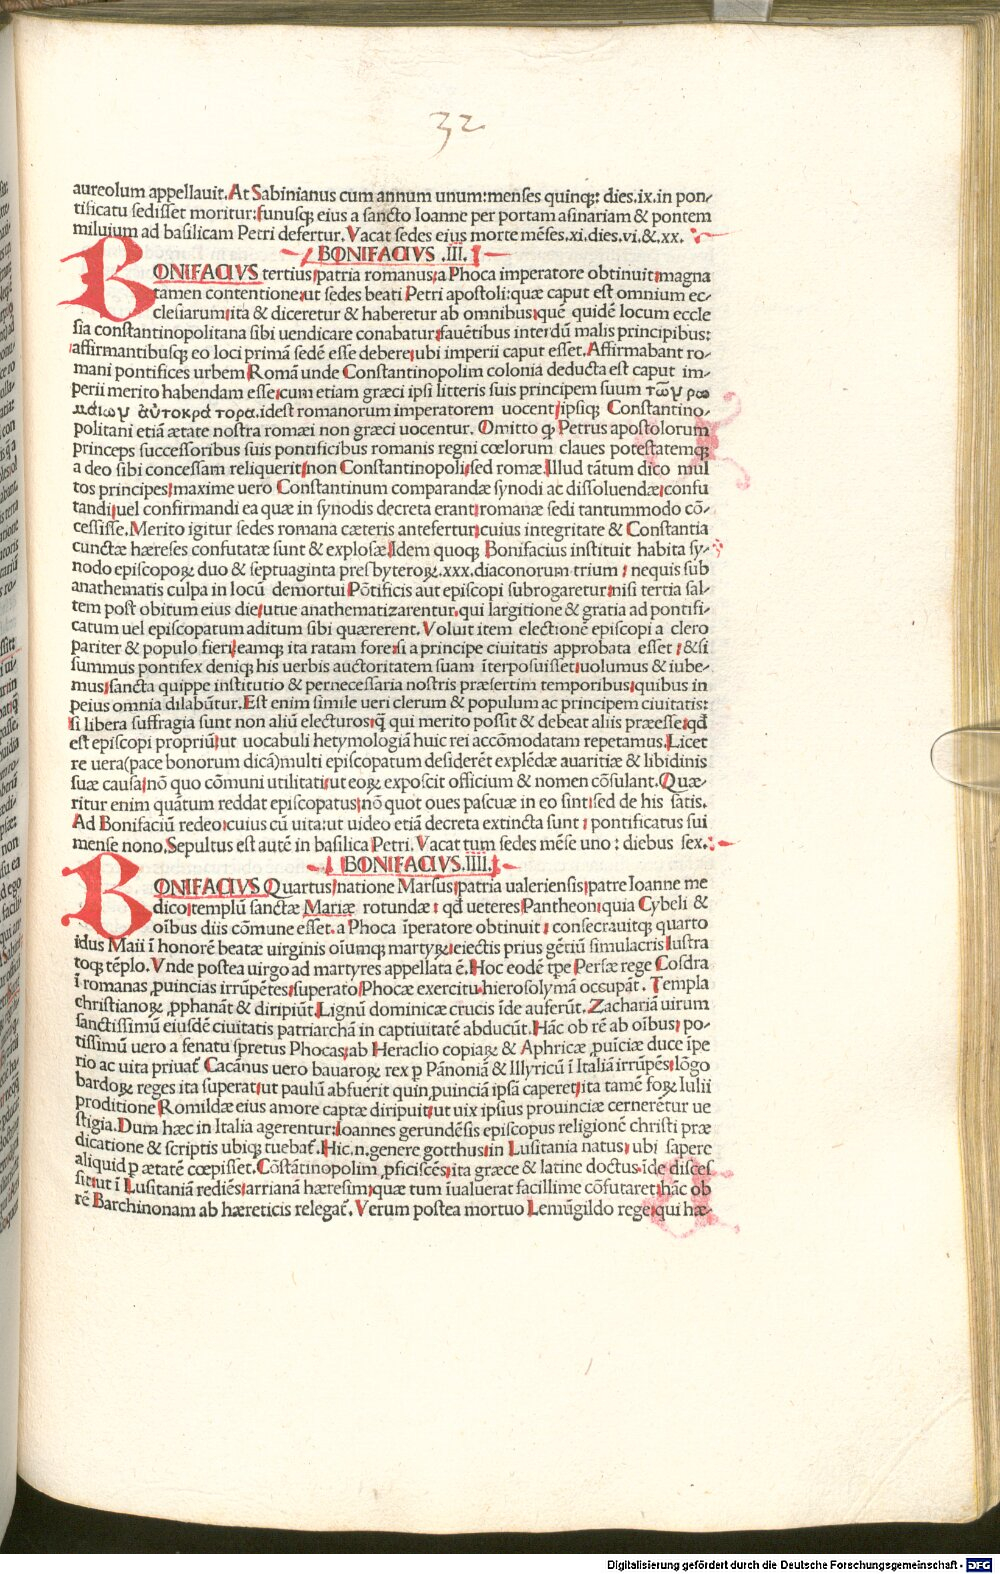 32
aureolum appellauit. At Sabinianus cum annum unum: menses quinqꝫ: dies .ix. in pon-
tificatu sedisset moritur: funusqꝫ eius a sancto Ioanne per portam asinariam & pontem
miluium ad basilicam Petri defertur. Vacat sedes eius morte mẽses .xi. dies .vi. & .xx.
BONIFACIVS .III.
BONIFACIVS tertius patria romanus a Phoca imperatore obtinuit magna
tamen contentione: ut sedes beati Petri apostoli: quæ caput est omnium ec-
clesiarum ita & diceretur & haberetur ab omnibus quẽ quidẽ locum eccle
sia constantinopolitana sibi uendicare conabatur: fauẽtibus interdũ malis principibus:
affirmantibusqꝫ eo loci primã sedẽ esse debere ubi imperii caput esset. Affirmabant ro-
mani pontifices urbem Romã unde Constantinopolim colonia deducta est caput im-
perii merito habendam esse: cum etiam græci ipsi litteris suis principem suum τῶν ρω
μαιων αὐτοκράτορα. idest romanorum imperatorem uocent ipsiqꝫ Constantino-
politani etiã ætate nostra romæi non græci uocentur. Omitto ꝙ Petrus apostolorum
princeps successoribus suis pontificibus romanis regni cœlorum claues potestatemqꝫ
a deo sibi concessam reliquerit non Constantinopoli sed romæ. Illud tãtum dico mul
tos principes maxime uero Constantinum comparandæ synodi ac dissoluendæ confu
tandi uel confirmandi ea quæ in synodis decreta erant romanæ sedi tantummodo cõ-
cessisse. Merito igitur sedes romana cæteris antefertur cuius integritate & Constantia
cunctæ hæreses confutatæ sunt & explosæ. Idem quoqꝫ Bonifacius instituit habita sy-
nodo episcopoꝝ duo & septuaginta presbyteroꝝ .xxx. diaconorum trium: nequis sub
anathematis culpa in locũ demortui Põtificis aut episcopi subrogaretur nisi tertia sal-
tem post obitum eius die utue anathematizarentur, qui largitione & gratia ad pontifi-
catum uel episcopatum aditum sibi quærerent. Voluit item electionẽ episcopi a clero
pariter & populo fieri eamqꝫ ita ratam fore si a principe ciuitatis approbata esset: & si
summus pontifex deniqꝫ his uerbis auctoritatem suam ĩterposuisset uolumus & iube-
mus sancta quippe institutio & pernecessaria nostris præsertim temporibus quibus in
peius omnia dilabũtur. Est enim simile ueri clerum & populum ac principem ciuitatis:
si libera suffragia sunt non aliũ electuros q̃ qui merito possit & debeat aliis præesse qđ
est episcopi propriũ ut uocabuli hetymologiã huic rei accõmodatam repetamus. Licet
re uera (pace bonorum dicã) multi episcopatum desiderẽt explẽdæ auaritiæ & libidinis
suæ causa nõ quo cõmuni utilitati ut eoꝝ exposcit officium & nomen cõsulant. Quæ-
ritur enim quãtum reddat episcopatus nõ quot oues pascuæ in eo sint sed de his satis.
Ad Bonifaciũ redeo cuius cũ uita: ut uideo etiã decreta extincta sunt: pontificatus sui
mense nono. Sepultus est autẽ in basilica Petri. Vacat tum sedes mẽse uno: diebus sex.
BONIFACIVS .IIII.
BONIFACIVS Quartus natione Marsus patria ualeriensis patre Ioanne me
dico templũ sanctæ Mariæ rotundæ: qđ ueteres Pantheon quia Cybeli &
oĩbus diis cõmune esset. a Phoca ĩperatore obtinuit: consecrauitqꝫ quarto
idus Maii ĩ honorẽ beatæ uirginis oĩumqꝫ martyꝝ eiectis prius gẽtiũ simulacris lustra
toqꝫ tẽplo. Vnde postea uirgo ad martyres appellata ẽ. Hoc eodẽ tp̃e Persæ rege Cosdra
ĩ romanas ꝓuincias irrũpẽtes superato Phocæ exercitu hierosolymã occupãt. Templa
christianoꝝ ꝓphanãt & diripiũt. Lignũ dominicæ crucis ĩde auferũt. Zachariã uirum
sanctissimũ eiusdẽ ciuitatis patriarchã in captiuitatẽ abducũt. Hãc ob rẽ ab oĩbus po-
tissimũ uero a senatu spretus Phocas ab Heraclio copiaꝝ & Aphricæ ꝓuĩciæ duce ĩpe
rio ac uita priuat̃. Cacãnus uero bauaroꝝ rex p Pãnoniã & Illyricũ ĩ Italiã irrũpẽs lõgo
bardoꝝ reges ita superat ut paulũ absuerit quin ꝓuinciã ipsã caperet ita tamẽ foꝝ Iulii
proditione Romildæ eius amore captæ diripuit ut uix ipsius prouinciæ cernerẽtur ue
stigia. Dum hæc in Italia agerentur: Ioannes gerundẽsis episcopus religionẽ christi præ
dicatione & scriptis ubiqꝫ tuebat̃. Hic .n. genere gotthus in Lusitania natus ubi sapere
aliquid p ætatẽ cœpisset. Cõstãtinopolim ꝓficiscẽs ita græce & latine doctus ĩde disces
sit ut ĩ Lusitaniã rediẽs arrianã hæresim quæ tum ĩualuerat facillime cõfutaret hãc ob
rẽ Barchinonam ab hæreticis relegat̃. Verum postea mortuo Lemũgildo rege qui hæ-
Digitalisierung gefördert durch die Deutsche Forschungsgemeinschaft - DFG